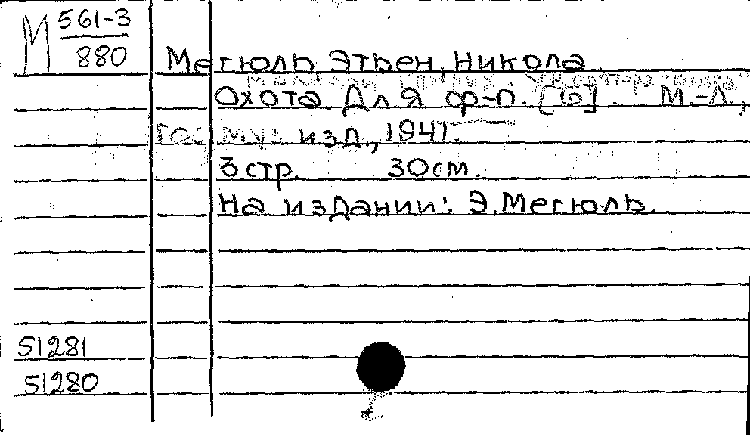 М 561-3
880
Мегюль, Этьен, Никола.
Охота. Для ф-п. [6]. М.-Л.,
Гос. муз. изд., 1941.
3 стр. 30см.
На издании: Э.Мегюль.
51281
51280